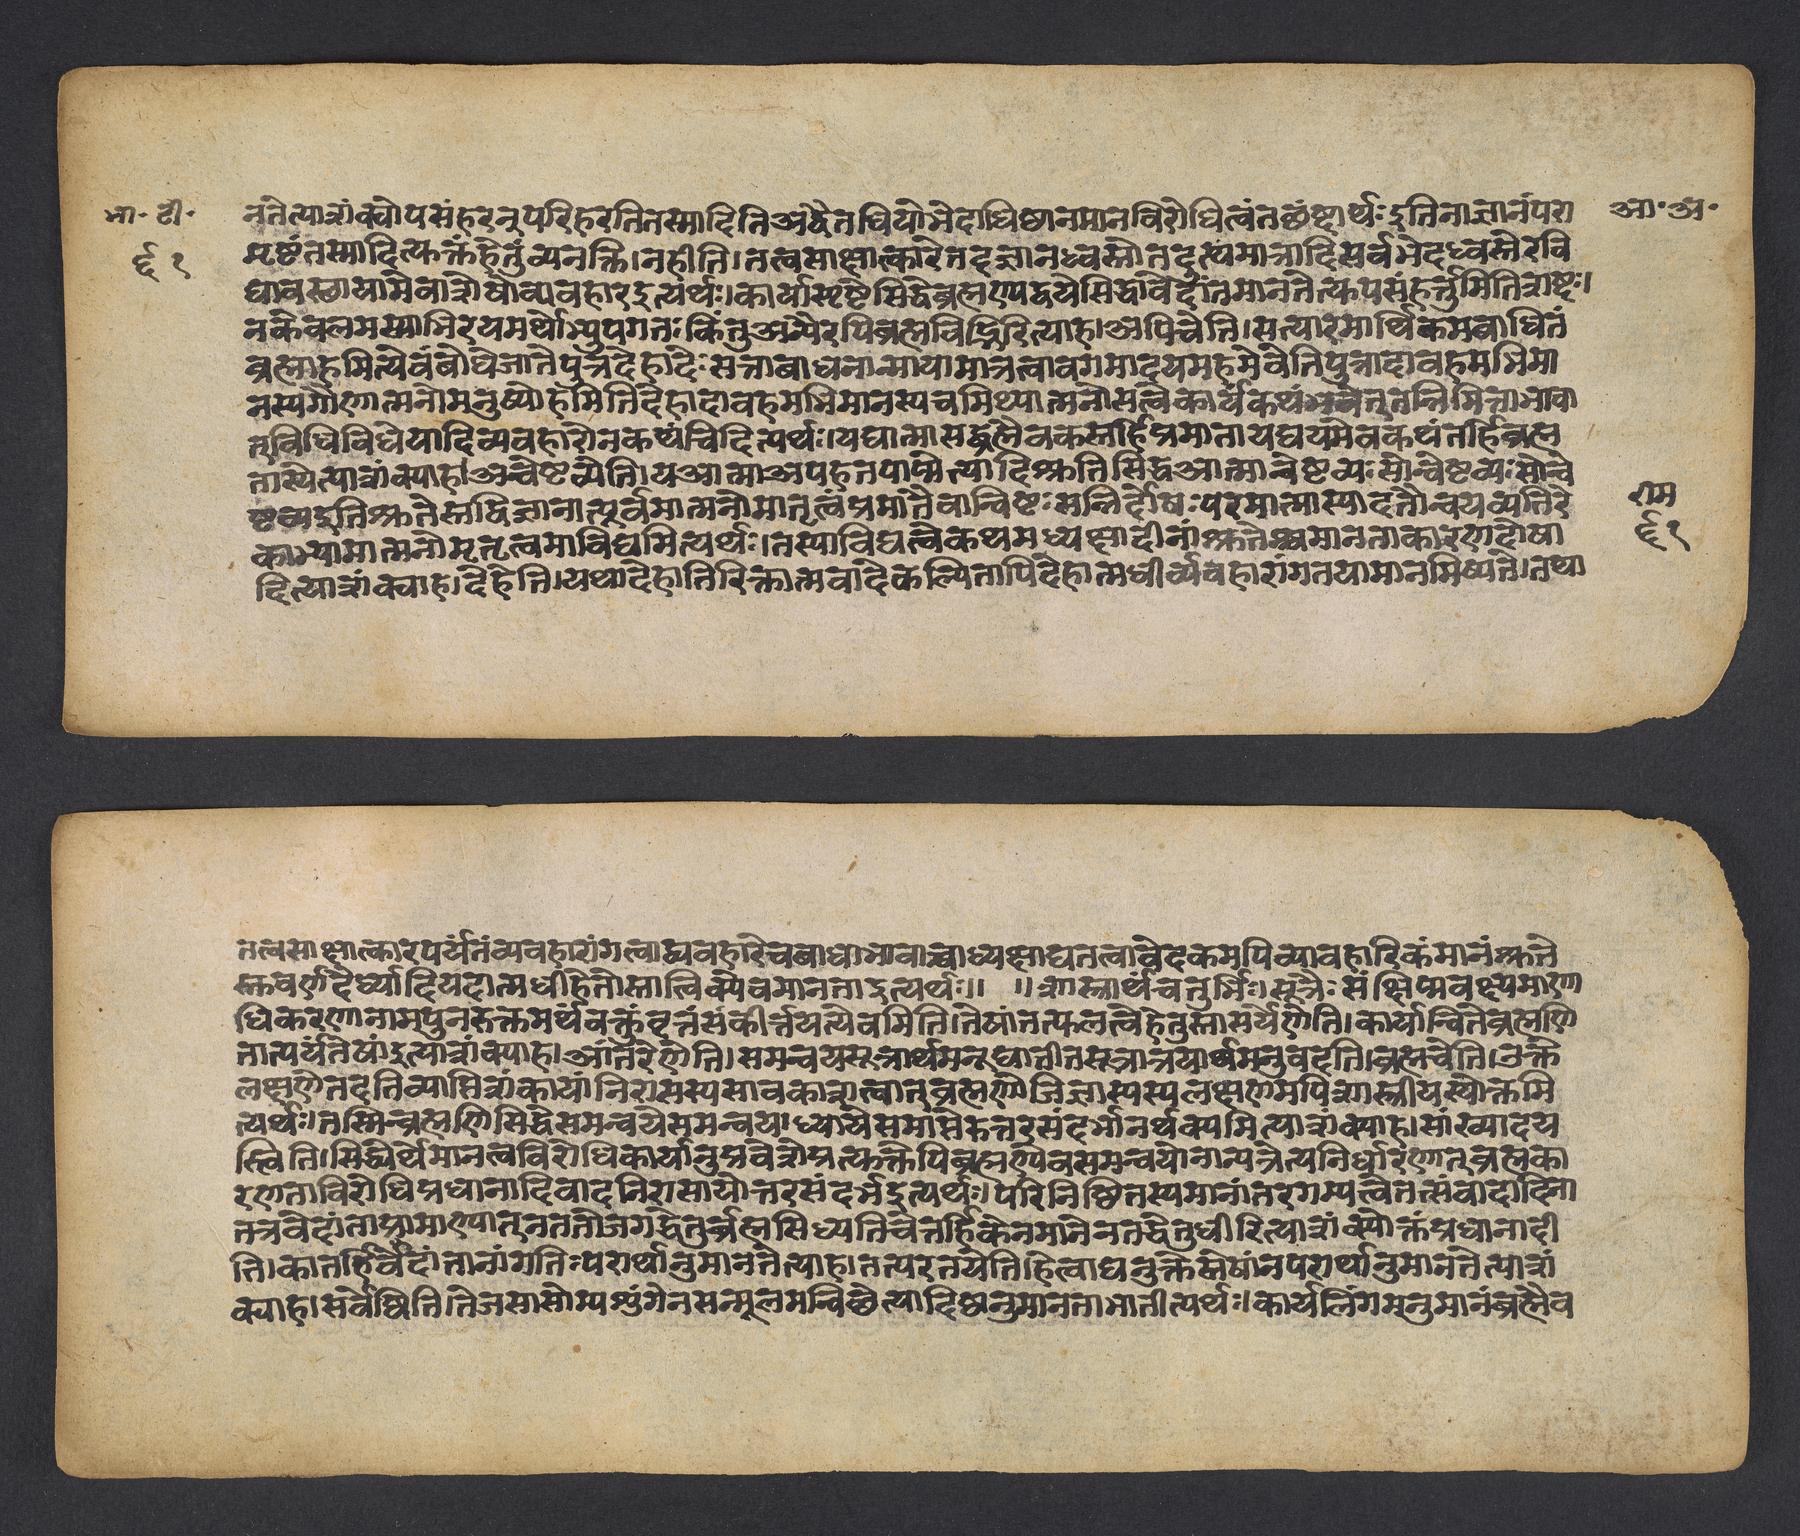 भा॰ टी॰
६१
नतेत्याशंक्योपसंहरनुपरिहरतितस्मादितिअद्वैतधियोभेदाधिष्ठानमानविरोधित्वंतछब्दार्थः इतिनाज्ञानंपरा
मृष्टंतस्मादित्यक्तहेतुंव्यनक्ति।नहीति।तत्वसाक्षात्कारेतदज्ञानध्वस्तौतदुत्थमात्रादिसर्वभेदध्वस्तेरवि
द्यावस्थायामेवाशेषोव्यवहारइत्यर्थः।कार्यास्पृष्टेसिद्धेब्रह्मण्यद्वयेसिद्धावेदांतमानतेत्युपसंहर्त्तुमितिशब्दः।
नकेवलमस्माभिरयमर्थोभ्युपगतःकिंतुअन्यैरपिब्रह्मविद्भिरित्याह।अपिचेति।सत्पारमार्थिकमबाधितं
ब्रह्माहमित्येवंबोधेजातेपुत्रदेहादेःसत्ताबाधनान्मायामात्रत्वावगमादयमहमेवेतिपुत्रादावहमभिमा
नस्यगौणात्मनोमनुष्योहमितिदेहादावहमभिमानस्यचमिथ्यात्मनोसत्वेकार्यंकथंभवेत्तन्निमित्ताभावा
त्विधिविधेयादिव्यवहारोनकथंचिदित्यर्थः।यद्यात्मासद्ब्रह्मैवकस्तर्हिप्रमातायद्ययमेवकथंतर्हिब्रह्म
तास्येत्याशंक्याह।अन्वेष्टव्येति।यआत्माअपहतपाप्मेत्यादिश्रुतिसिद्धआत्मान्वेष्टव्यःसोन्वेष्टव्यःसोन्वे
ष्टव्यइतिश्रुतेस्तद्विज्ञानात्पूर्वमात्मनोमातृत्वंप्रमातैवान्विष्टःसन्निर्दोषःपरमात्मास्यादतोन्वयव्यतिरे
काभ्यामात्मनोमातृत्वमाविद्यमित्यर्थः।तस्याविद्यत्वेकथमध्यक्षादीनांश्रुतेश्चमानताकारणदोषा
दित्याशंक्याह।देहेति।यथादेहातिरिक्तात्मवादेकल्पितापिदेहात्मधीर्व्यवहारांगतयामानमिष्यते।तथा
आ॰ अ॰
राम
६१
तत्वसाक्षात्कारपर्यंतंव्यवहारांगत्वाद्व्यवहारेचबाधाभावाच्चाध्यक्षाद्यतत्वावेदकमपिव्यावहारिकंमानंश्रुते
स्तुवर्णदैर्घ्यादियदात्मधीहेतोस्तात्विक्येवमानताइत्यर्थः॥ ॥शास्त्रार्थंचतुर्भिःसूत्रैःसंक्षिप्यवक्ष्यमाणा
धिकरणानामपुनरुक्तमर्थंवक्तुंवृत्तंसंकीर्त्तयत्येवमिति।तेषांतत्फलत्वेहेतुस्तात्पर्येणेति।कार्यान्वितेब्रह्मणि
तात्पर्यंतेषांइत्याशंक्याह।अंतरेणेति।समन्वयसूत्रार्थमनूद्यातीतसूत्रात्रयार्थमनुवदति।ब्रह्मचेति।उक्त
लक्षणेतदतिव्याप्तिशंकायांनिरासस्यसावकाशत्वात्ब्रह्मणोजिज्ञास्यस्यलक्षणमपिशास्त्रीयस्योक्तमि
त्यर्थः।तस्मिन्ब्रह्मणिसिद्धेसमन्वयेसमन्वयाध्यायेसमाप्तेरुत्तरसंदर्भानर्थक्यमित्याशंक्याह।सांख्यादय
स्त्विति।सिद्धेर्थेमानत्वविरोधिकार्यानुप्रवेशेप्रत्युक्तेपिब्रह्मण्येवसमन्वयोनान्यत्रेत्यनिर्धारणात्ब्रह्मका
रणताविरोधिप्रधानादिवादनिरासायोत्तरसंदर्भइत्यर्थः।परिनिष्ठितस्यमानांतरगम्यत्वेतत्संवादादिना
तत्रवेदांताप्रामाण्यात्नततोजगद्धेतुर्ब्रह्मसिध्यतिचेत्तर्हिकेनमानेनतद्धेतुधीरित्याशंक्योक्तंप्रधानादी
ति।कातर्हिवेदांतानांगतिःपरार्थानुमानतेत्याह।तत्परतयेति।हेत्वाद्यनुक्तेस्तेषांनपरार्थानुमानतेत्याशं
क्याह।सर्वेष्विति।तेजसासोम्यशुंगेनसन्मूलमन्विछेत्यादिष्वनुमानताभातीत्यर्थः।कार्यलिंगमनुमानंब्रह्मैव